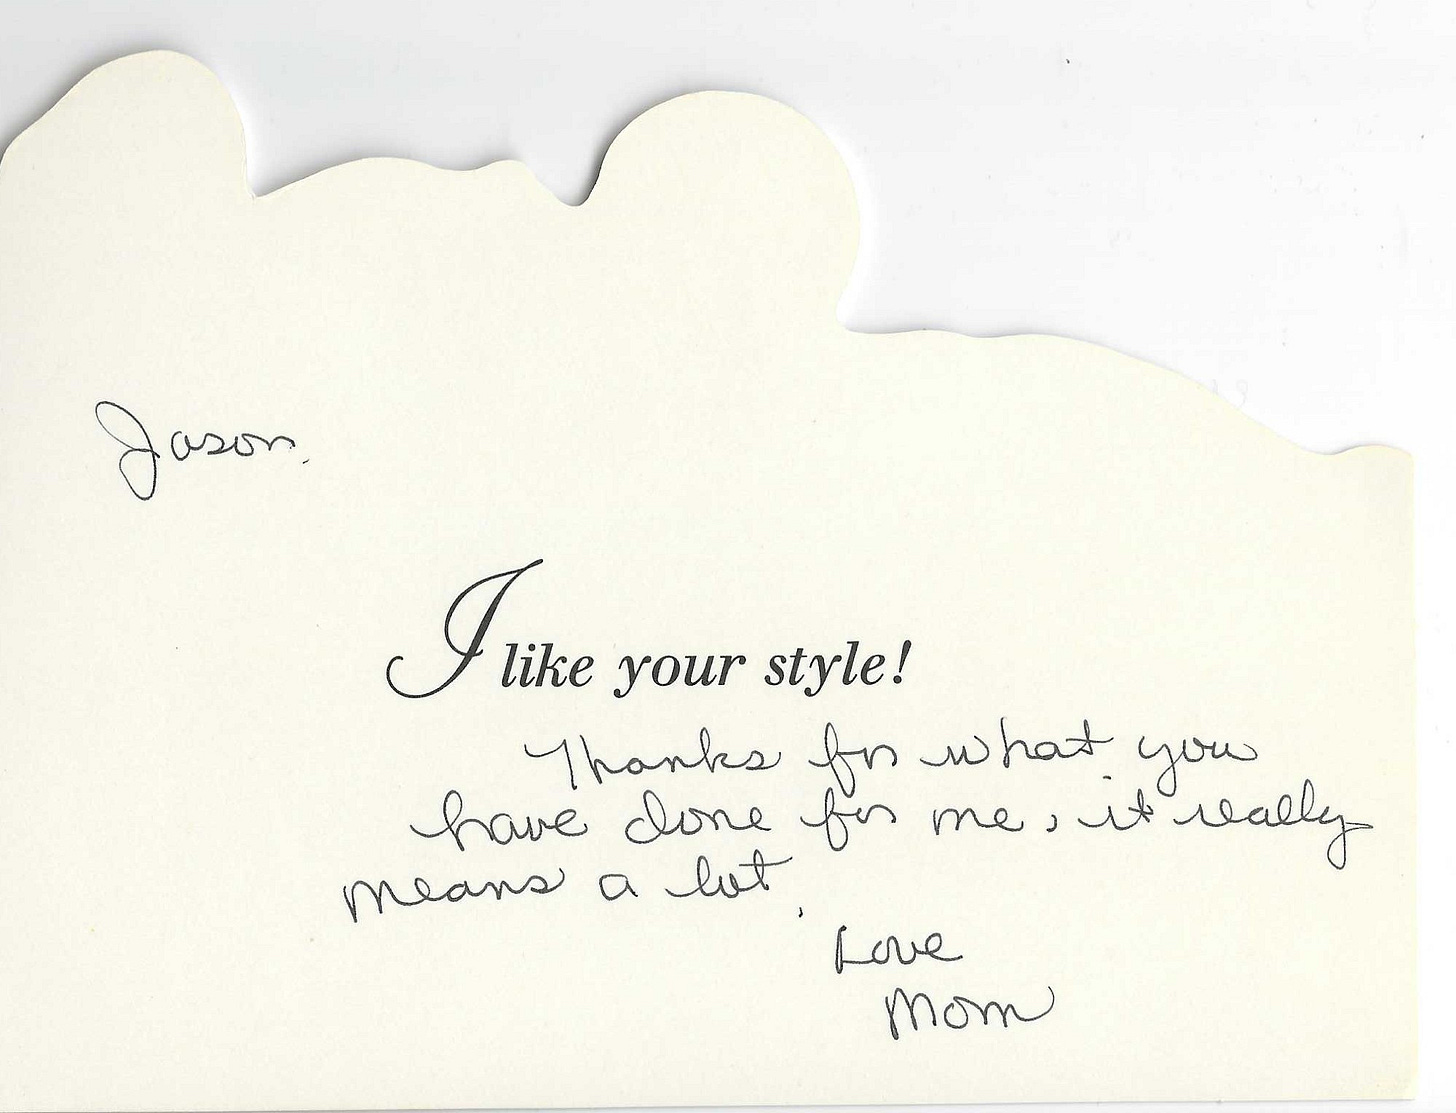 Jason,
I like your style!
Thanks for what you
have done for me, it really
means a lot.
Love
Mom